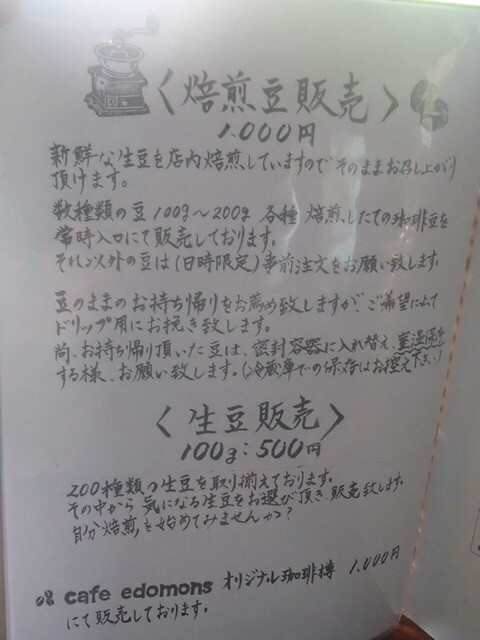 〈焙煎豆販売〉
1.000円
新鮮な生豆を店内焙煎していますので そのままお召し上がり
頂けます。
数種類の豆100g〜200g 各種 焙煎したての珈琲豆を
常時入口にて販売しております。
それ以外の豆は(日時限定)事前注文をお願い致します。
豆のままのお持ち帰りをお薦め致しますが、ご希望によって
ドリップ用にお挽き致します。
尚、お持ち帰り頂いた豆は、密封容器に入れ替え、室温保存
する様、お願い致します。(冷蔵庫での保存はお控え下さい)
〈生豆販売〉
100g:500円
200種類の生豆を取り揃えております。
その中から 気になる生豆をお選び頂き、販売致します。
自分焙煎、を始めてみませんか?
cafe edomons オリジナル珈琲樽 1.000円
にて販売しております。